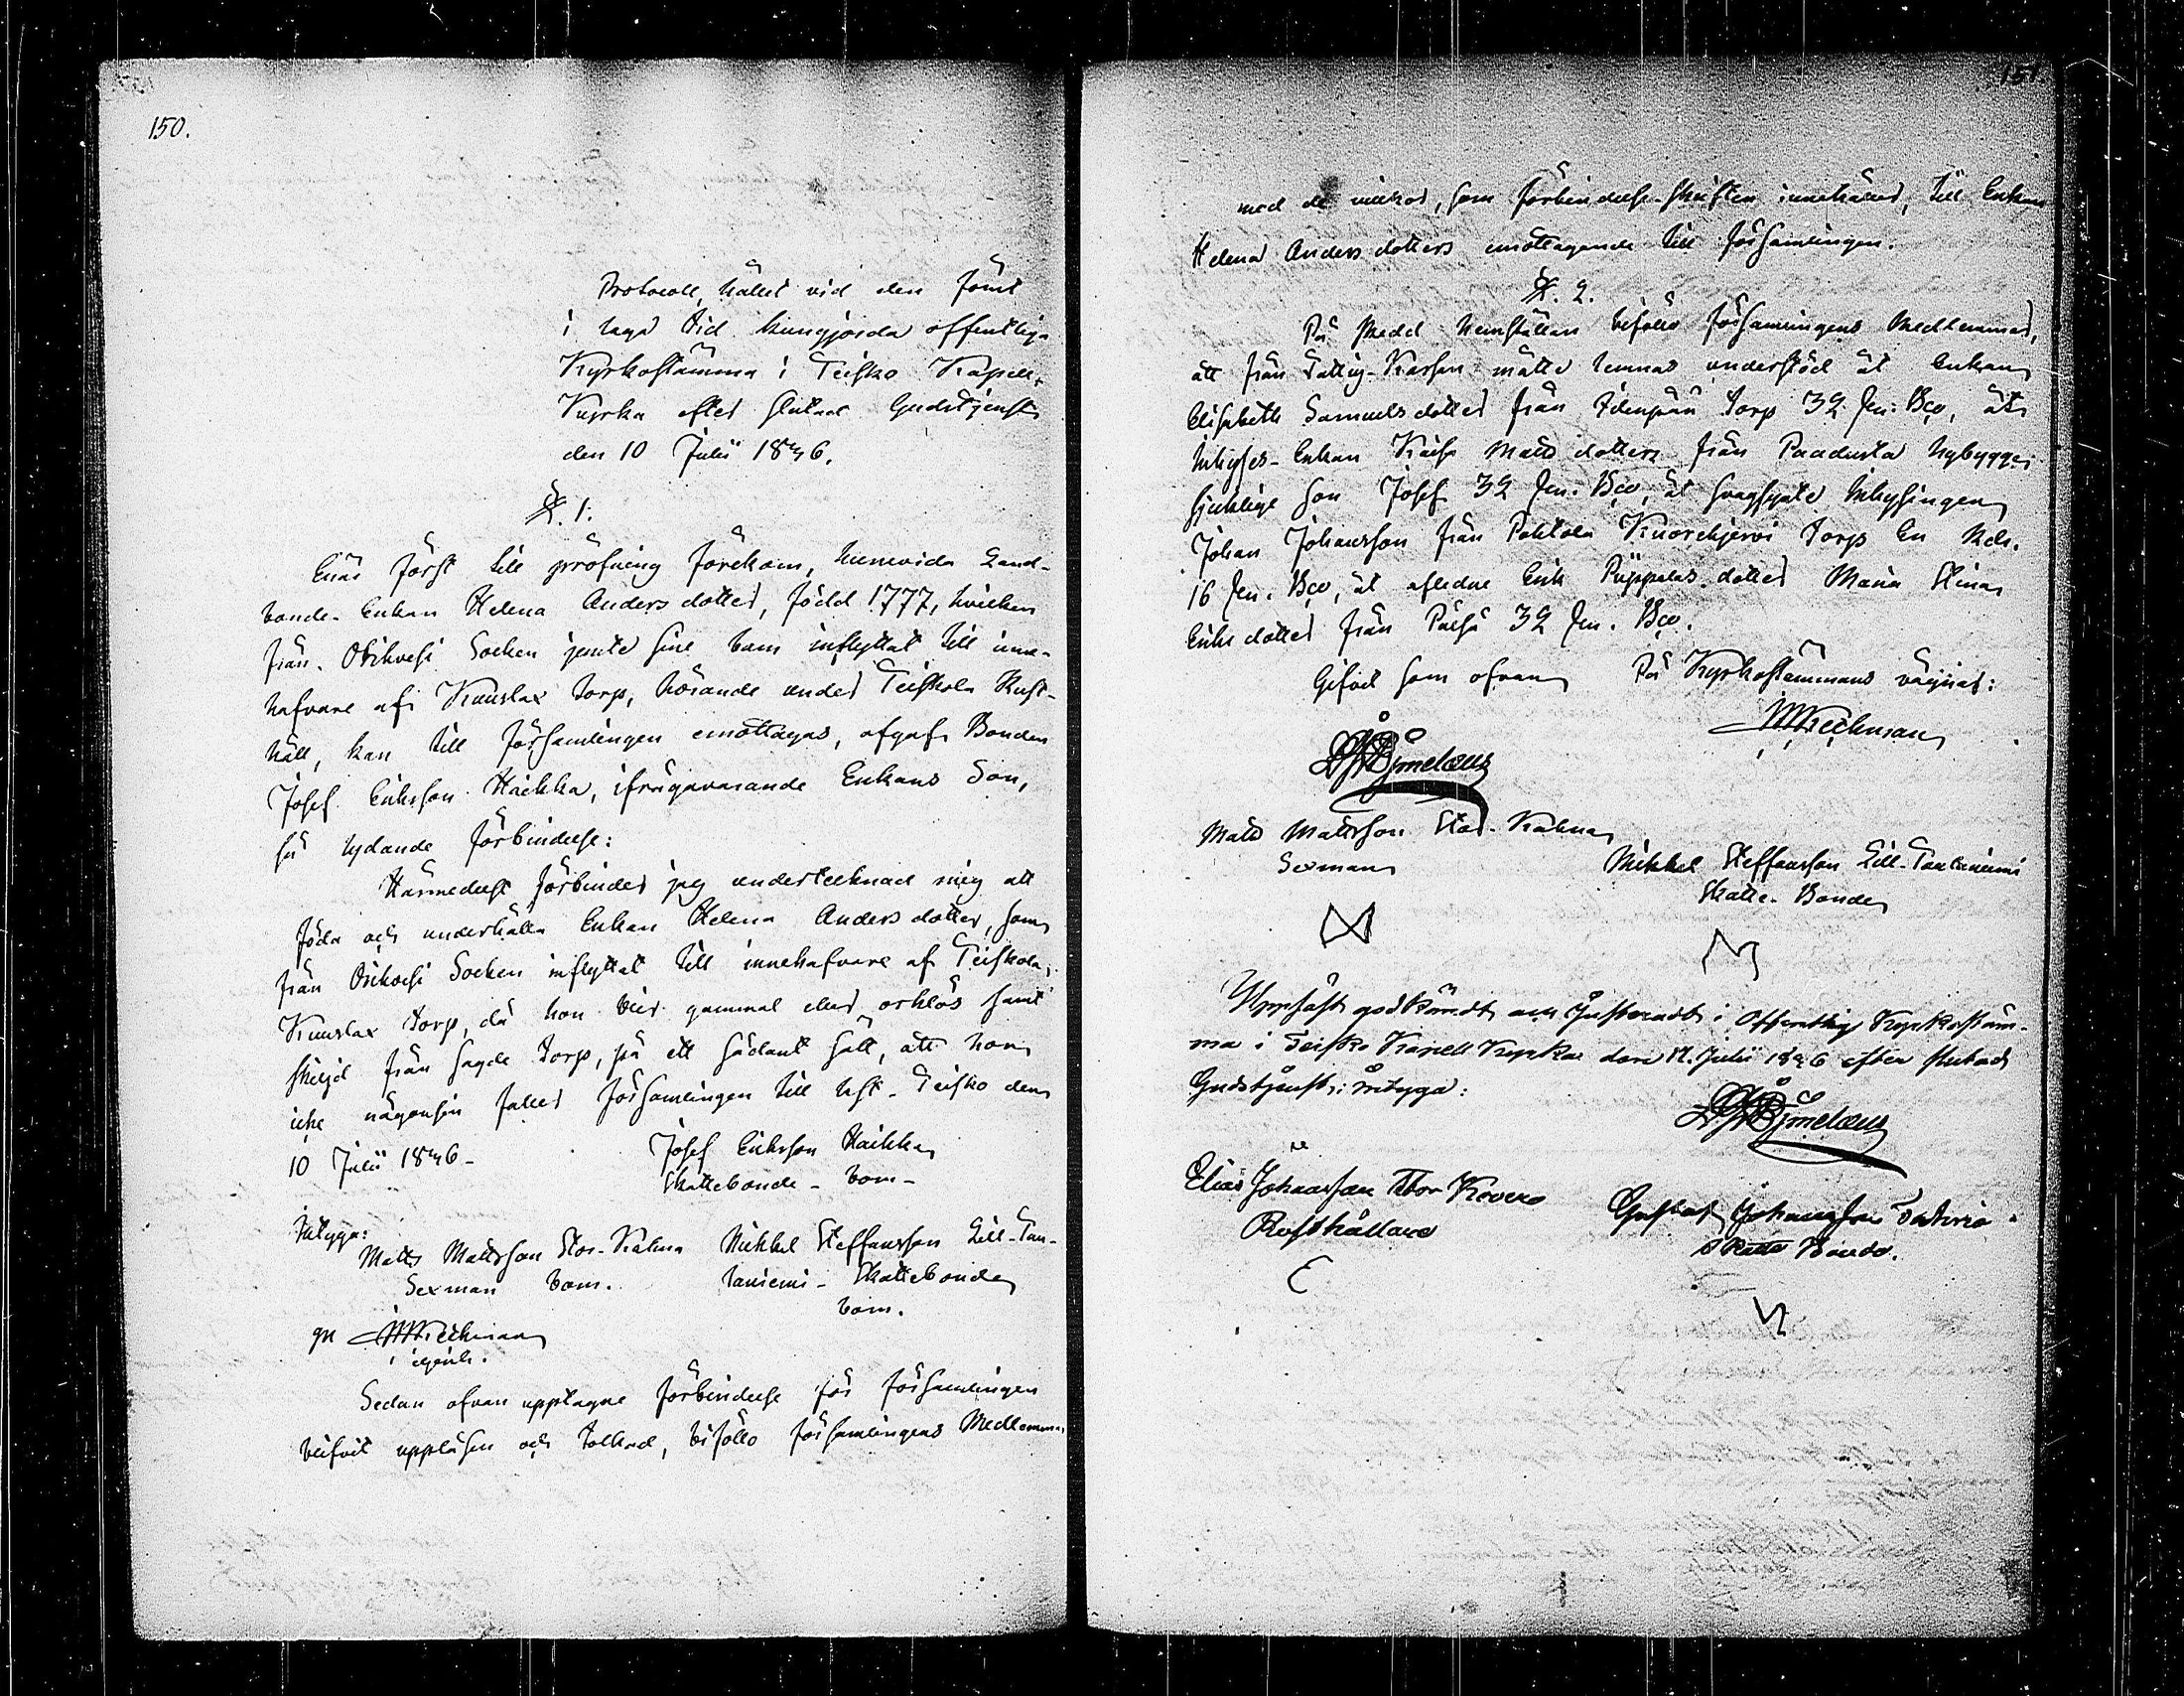 150.
Protocoll, hållet vid den förut
i laga tid kungjorda offentliga
Kyrkostämma i Teisko Kapell-
Kyrka efter slutad Gudstjenst
den 10 Julii 1836.
§. 1.
Enär först till pröfning förekom, huruvida Land-
bonde-Enkan Helena Anders dotter, född 1777, hvilken
från Orihvesi Socken jemte sine barn inflyttat till inne-
hafvare af Kuuslax torp, hörande under Teiskola Rust-
håll, kan till församlingen emottagas, afgaf Bonden
Josef Eriksson Haikka, ifrågavarande Enkans Son,
så lydande förbindelse:
Härmedelst förbinder jag undertecknad mig att
föda och underhålla Enkan Helena Anders dotter, som
från Orihvesi Socken inflyttat till innehafvare af Teiskola
Kuuslax torp, då hon blir gammal eller orklös samt
skiljd från sagde torp, på ett sådant sätt, att hon
icke någonsin faller församlingen till last. Teisko den
10 Julii 1836.
Josef Eriksson Haikka
Skattebonde - bom-
Intyga:
Matts Mattsson Stor-Kulma Mikkel Steffansson Lill-Tau-
Sexman bom. taniemi - Skattebonde
bom.
Sedan ofvan upptagne förbindelse för församlingen
blifvit uppläsen och tolkad, biföllo församlingens Medlemmar
151
med de vilkor, som förbindelse-skriften innehåller, till Enkan
Helena Anders dotters emottagande till församlingen.
§. 2.
På skedd hemställan biföllo församlingens Medlemmar,
att från Fattig-Kassan måtte lemnas understöd åt Enkan
Elisabeth Samuels dotter från torp 32 sk. Bco, åt
Inhyses-Enkan Kaisa Matts dotters från Paadusta nybygge
sjuklige son Josef 32 sk. Bco, åt svagsynte Inhysingen
Johan Johansson från Pohtola Kuorehjervi torp En Rdr.
16 sk. Bco, åt aflidne Erik Pyppälas dotter Maria Stina
Eriks dotter från 32 sk. Bco.
Gifvit som ofvan På Kyrkostämmans vägnar:
Matts Mattsson Stor-Kulma
Sexman
Mikkel Steffansson Lill-Tautaniemi
Skatte-Bonde
Uppläst, godkändt och justeradt i Offentlig Kyrkostäm-
ma i Teisko Kapell Kyrka den 17. Julii 1836 efter slutad
Gudstjenst; intyga:
Elias Johansson Stor Kovero
Rusthållare
Gustaf Johansson
Skatte Bonde.